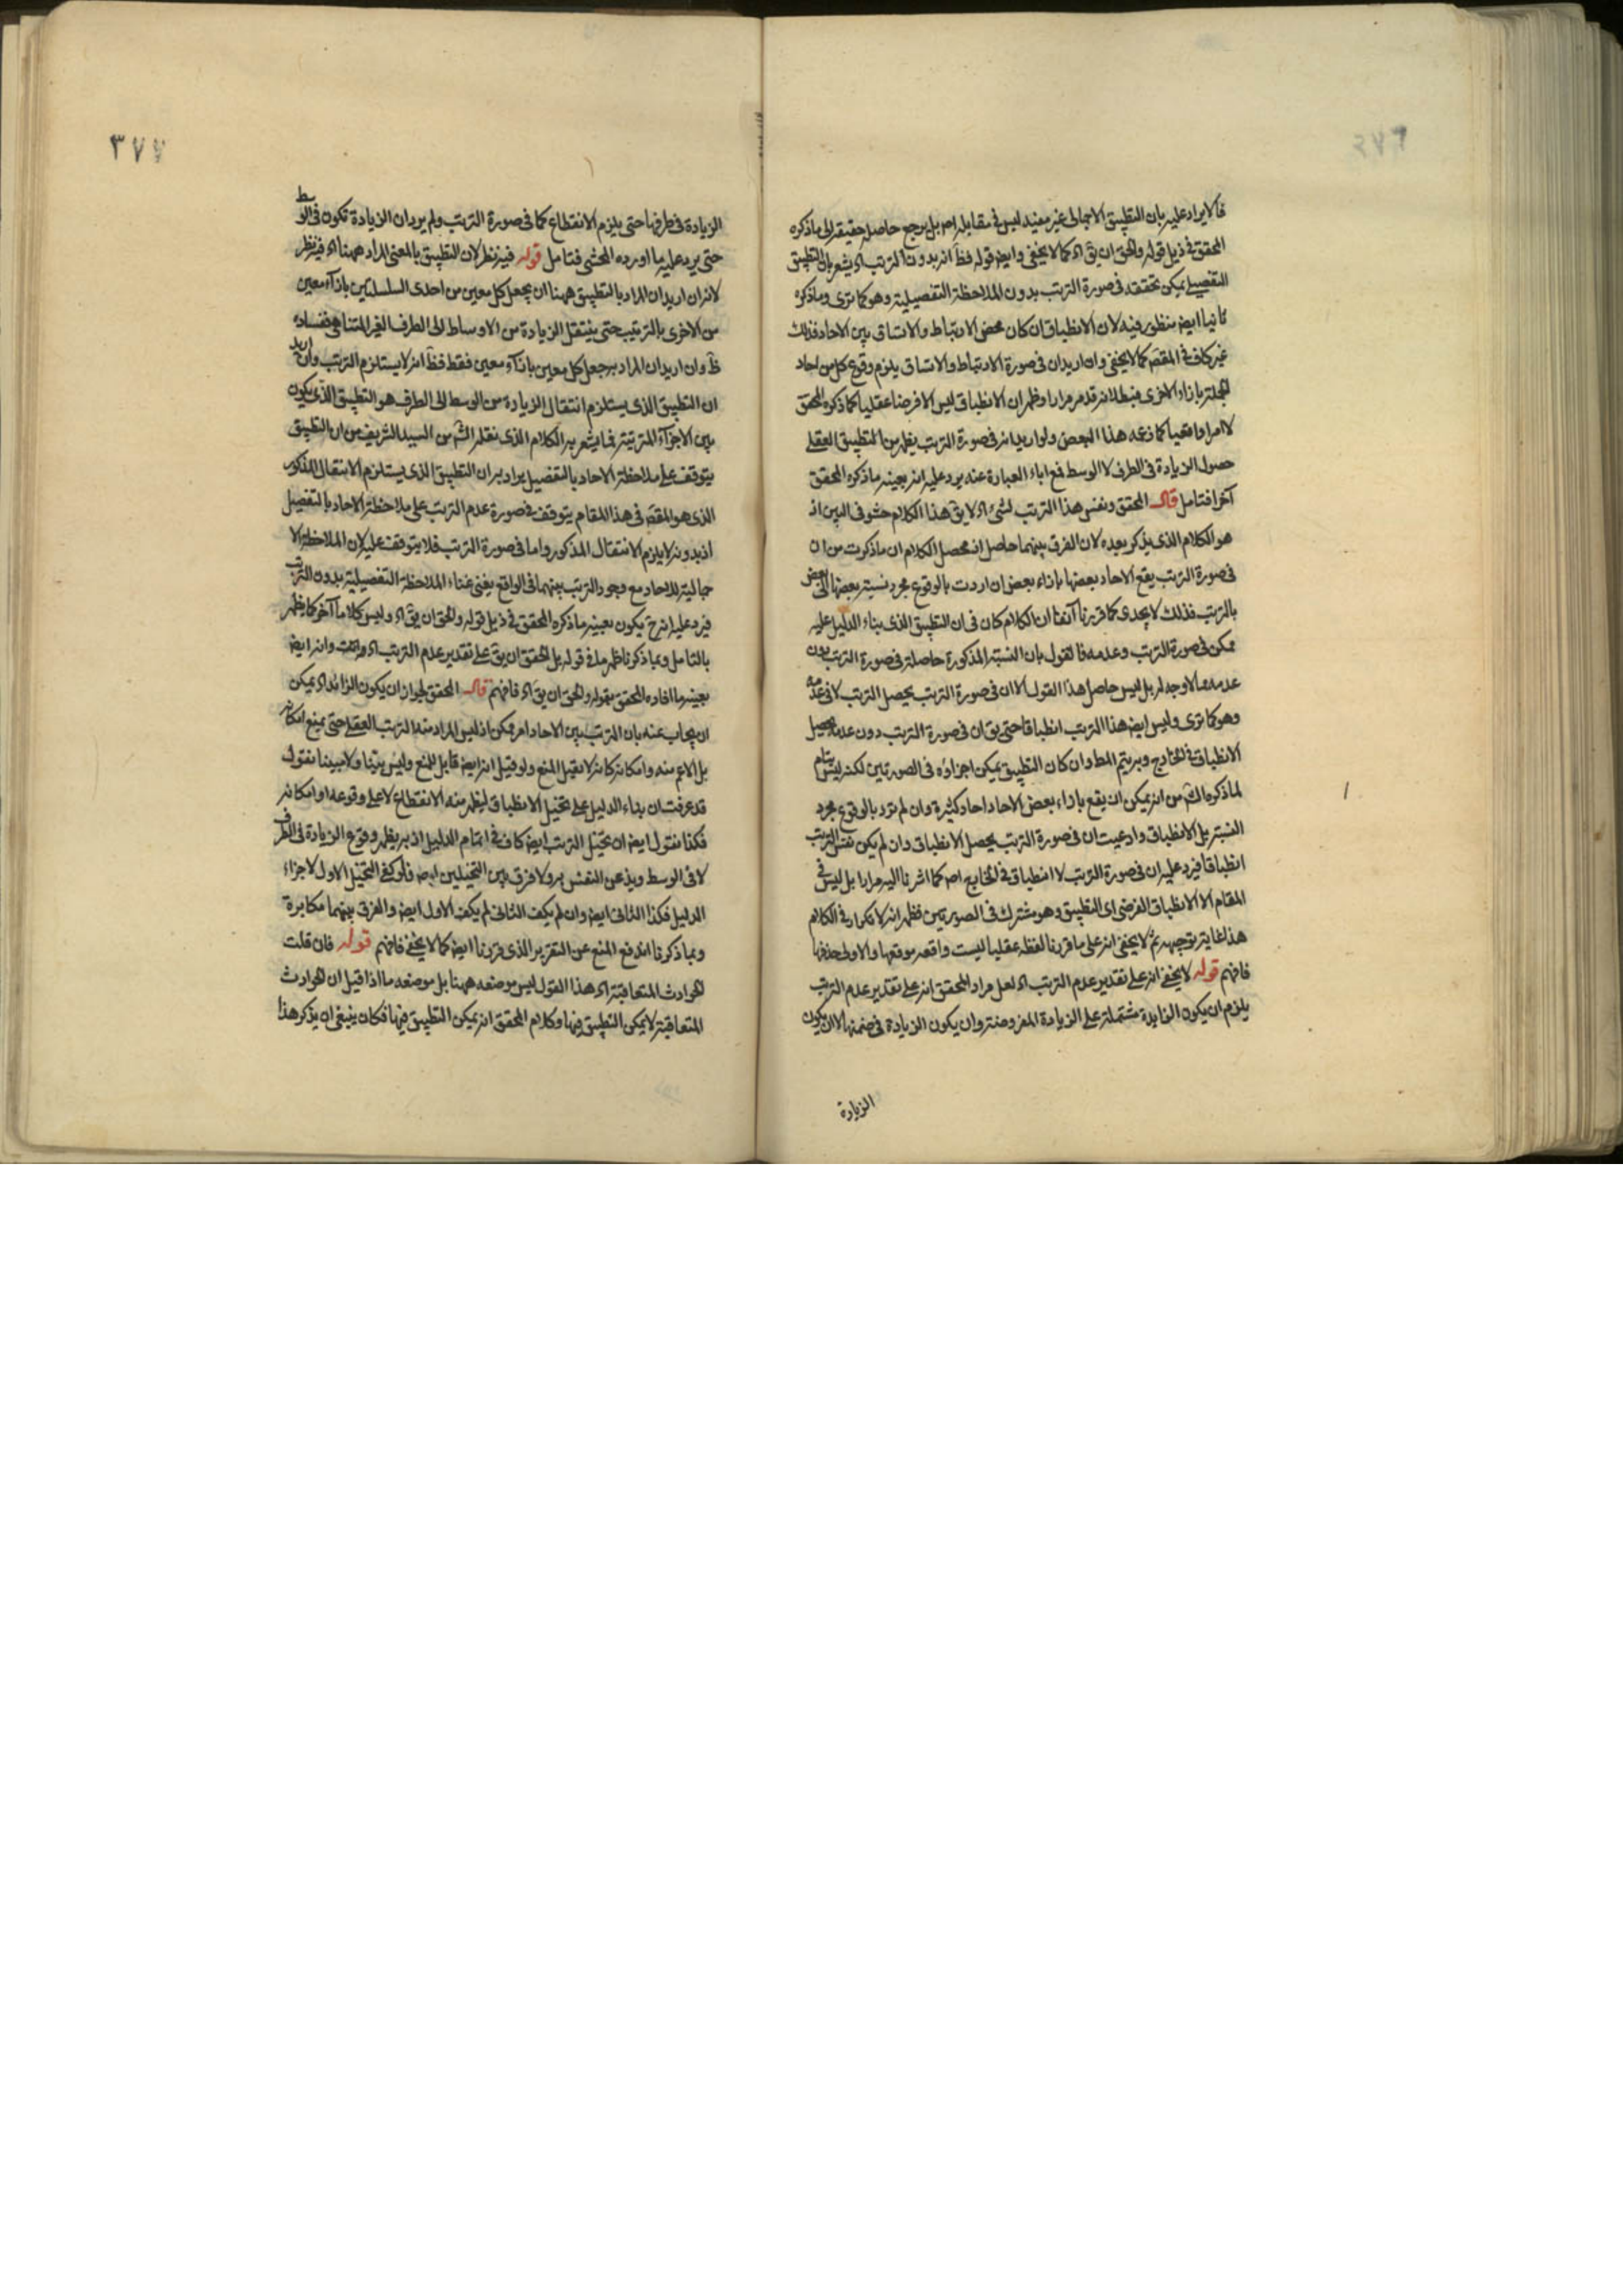 ٣٧٦
فالايراد عليه بان التطبيق الاجمالى غير مفيد ليس فى مقابله اصلا بل يرجع حاصله حقيقة الى ما ذكره
المحقق فى ذيل قوله والحق ان يقّ اه كما لا يخفى وايضا قوله فظّ انه بدون الترتب اه يشعر بان التطبيق
التفصيلى يمكن تحققه فى صورة الترتب بدون الملاحظة التفصيلية وهو كما ترى وما ذكره
ثانيا ايضا منظور فيه لان الانطباق ان كان محض الارتباط والاتساق بين الاحاد فذلك
غير كاف فى المقصّ كما لا يخفى وان اريد ان فى صورة الارتباط والاتساق يلزم وقوع كل من احاد
الجملة بازاء الاخرى فبطلانه قد مر مرارا وظهر ان الانطباق ليس الا فرضا عقليا كما ذكره المحقق
لا امرا واقعيا كما زعمه هذا البعض ولو اريد انه فى صورة الترتب يظهر من التطبيق العقلى
حصول الزيادة فى الطرف لا الوسط فمع اباء العبارة عنه يرد عليه انه بعينه ما ذكره المحقق
آخرا فتامل قال المحقق ونفس هذا الترتب لشئ اه لا يقّ هذا الكلام حشو فى البين اذ
هو الكلام الذى يذكر بعيده لان الفرق بينهما حاصل اذ محصل الكلام ان ما ذكرت من ان
فى صورة الترتب يقع الاحاد بعضها بازاء بعض ان اردت بالوقوع مجرد نسبة بعضها الى بعض
بالترتب فذلك لا يجدى كما قررنا آنفا ان الكلام كان فى ان التطبيق الذى بناء الدليل عليه
ممكن فى صورة الترتب وعدمه فالقول بان النسبة المذكورة حاصلة فى صورة الترتب دون
عدمه مما لا وجه له بل ليس حاصل هذا القول الا ان فى صورة الترتب يحصل الترتب لا فى عدمه
وهو كما ترى وليس ايضا هذا الترتب انطباقا حتى يق ان فى صورة الترتب دون عدمه يحصل
الانطباق فى الخارج وبه يتم المط وان كان التطبيق يمكن اجزاؤه فى الصورتين لكنه ليس بتام
لما ذكره الشّ من انه يمكن ان يقع بازاء بعض الاحاد احاد كثيرة وان لم ترد بالوقوع مجرد
النسبة بل الانطباق وادعيت ان فى صورة الترتب يحصل الانطباق وان لم يكن نفس الترتب
انطباقا فيرد عليه ان فى صورة الترتب لا انطباق فى الخارج اصلا كما اشرنا اليه مرارا بل ليس فى
المقام الا الانطباق الفرضى اى التطبيق وهو مشترك فى الصورتين فظهر انه لا تكرار فى الكلام
هذا غاية توجيهه ثم لا يخفى انه على ما قررنا لفظه عقليا ليست واقعه موقعها والاولى حذفها
فافهم قوله لا يخفى انه على تقدير عدم الترتب اه لعل مراد المحقق انه على تقدير عدم الترتب
يلزم ان يكون الزايدة مشتملة على الزيادة المفروضة وان يكون الزيادة فى ضمنها لا ان يكون
الزيادة
٣٧٧
الزيادة فى طرفها حتى يلزم الانقطاع كما فى صورة الترتب ولم يرد ان الزيادة تكون فى الوسط
حتى يرد عليه ما اورده المحشى فتامل قوله فيه نظر لان التطبيق بالمعنى المراد ههنا اه فيه نظر
لانه ان اريد ان المراد بالتطبيق ههنا ان يجعل كل معين من احدى السلسلتين بازآء معين
من الاخرى بالترتيب حتى ينتقل الزيادة من الاوساط الى الطرف الغير المتناهى ففساده
ظّ وان اريد ان المراد به جعل كل معين بازآء معين فقط فظّ انه لا يستلزم الترتب وان اريد
ان التطبيق الذى يستلزم انتقال الزيادة من الوسط الى الطرف هو التطبيق الذى يكون
بين الاجزآء المترتبة فما يشعر به الكلام الذى نقله الشّ من السيد الشريف من ان التطبيق
يتوقف على ملاحظة الاحاد بالتفصيل يراد به ان التطبيق الذى يستلزم الانتقال المذكور
الذى هو المقصّ فى هذا المقام يتوقف فى صورة عدم الترتب على ملاحظة الاحاد بالتفصيل
اذ بدونه لا يلزم الانتقال المذكور واما فى صورة الترتب فلا يتوقف عليه لان الملاحظة الا
جمالية للاحاد مع وجود الترتب بينهما فى الواقع يغنى غناء الملاحظة التفصيلية بدون الترتب
فيرد عليه انه حّ يكون بعينه ما ذكره المحقق فى ذيل قوله والحق ان يقّ اه وليس كلاما آخر كما يظهر
بالتامل وبما ذكرنا ظهر ما فى قوله بل الحق ان يق على تقدير عدم الترتب اه وانه ايضا
بعينه ما افاده المحقق بقوله والحق ان يقّ اه فافهم قال المحقق لجواز ان يكون الزائد اه يمكن
ان يجاب عنه بان الترتب بين الاحاد امر ممكن اذ ليس المراد منه الترتب العقلى حتى يمنع امكانه
بل الاعم منه وامكانه كانه لا يقبل المنع ولو قيل انه ايضا قابل للمنع وليس بيّنا ولا مبينا نقول
قد عرفت ان بناء الدليل على تخيل الانطباق ليظهر منه الانقطاع لا على وقوعه او امكانه
فكذا نقول ايضا ان تخيل الترتب ايضا كاف فى اتمام الدليل اذ به يظهر وقوع الزيادة فى الطرف
لا فى الوسط ويذعن النفس به ولا فرق بين التخيلين ايضا فلو كفى التخيل الاول لاجزاء
الدليل فكذا الثانى ايضا وان لم يكف الثانى لم يكف الاول ايضا والفرق بينهما مكابرة
وبما ذكرنا اندفع المنع عن التقرير الذى قررنا ايضا كما لا يخفى فافهم قوله فان قلت
الحوادث المتعاقبة اه هذا القول ليس موضعه ههنا بل موضعه ما اذا قيل ان الحوادث
المتعاقبة لا يمكن التطبيق فيها وكلام المحقق انه يمكن التطبيق فيها فكان ينبغى ان يذكر هذا